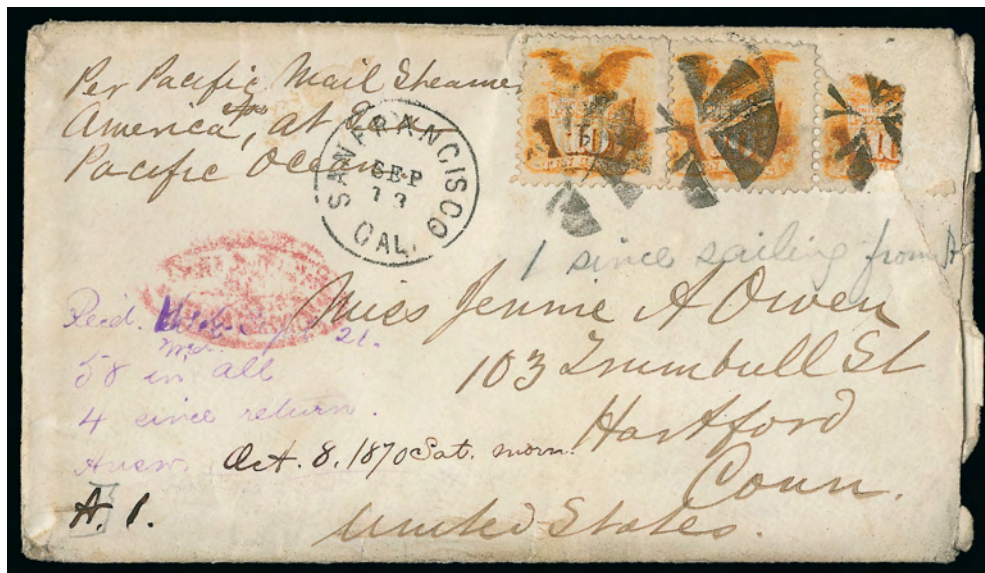 Per Pacific Mail Steamer
America, at Sea
Pacific Ocean
SAN FRANCISCO
SEP
13
CAL.
1 since sailing from
Miss Jennie A Owen
103 Trumbull St
Hartford
Conn.
United States.
Recd. Sept. 21.
58 in all
4 since return.
Answ. Oct. 8. 1870 Sat. morn.
A. 1.